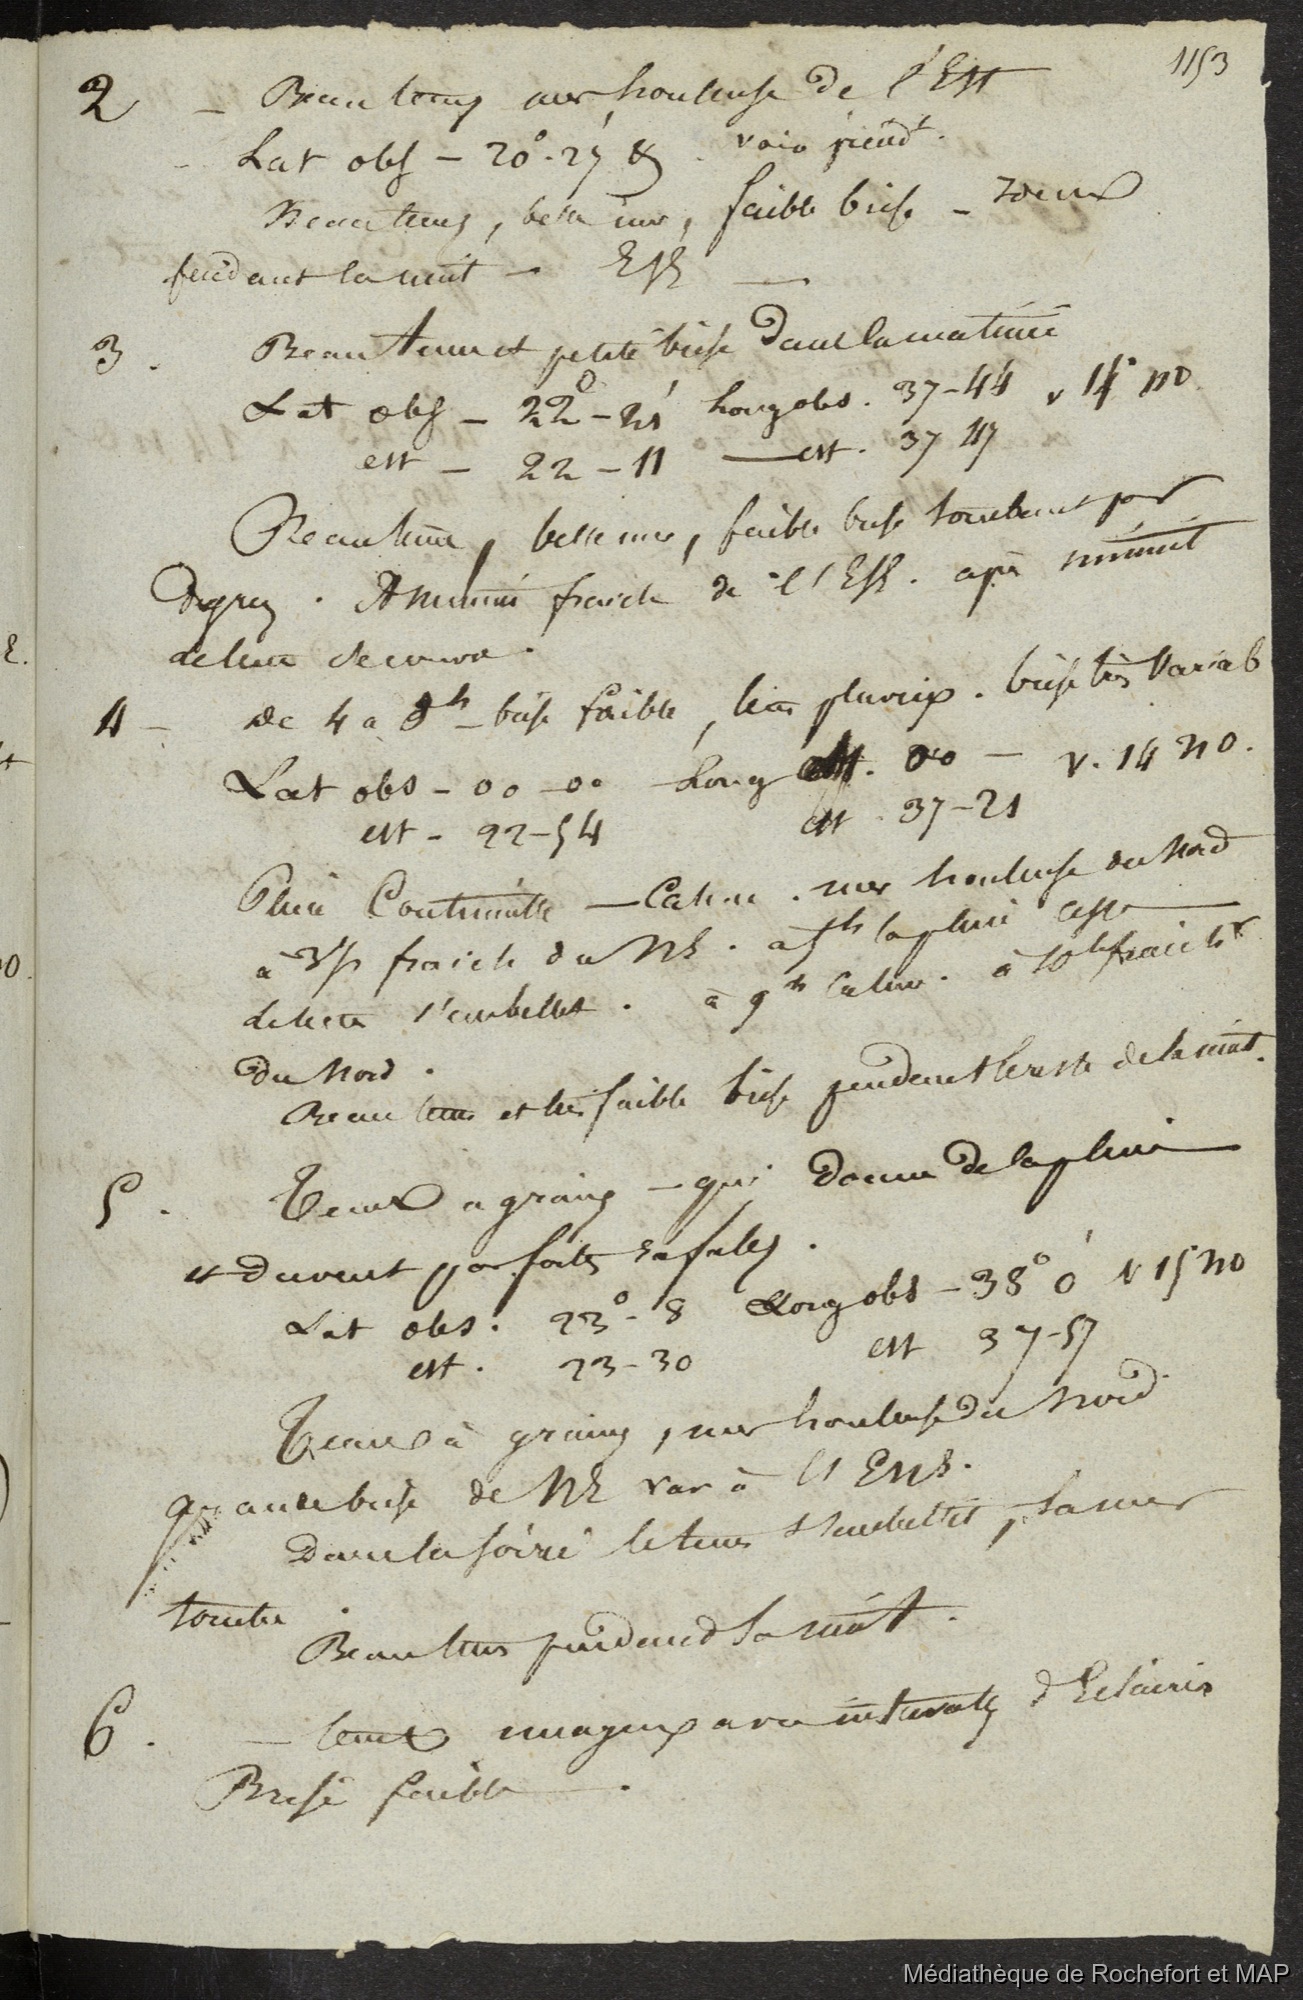 1153
2 – Beau temps mer houleuse de l'Est
Lat obs – 20°. 27' &
Beau tems, belle mer, faible brise –
pendant la nuit – ESE –
3. Beau tems et petite brise dans la matinée
Lat obs – 22° – 21' Long obs. 37–44 v 14° no
est – 22 – 11 — est. 37 47
Beau tems, belle mer, faible brise tombant par
degrés. A minuit fraiche de l'ESE. après minuit
le tems se couvre.
4 – de 4 a 8h – brise faible, tems pluvieux. brise très variab
Lat obs – 00 – 00 Long est. 00 – v. 14 no.
est – 22–54 est. 37–21
Pluie Continuelle – Calme. mer houleuse du Nord
à 3h fraiche du NE. a 5h la pluie cesse
le tems s'embellit. à 9h Calme. à 10h fraiche
du Nord.
Beau tems et très faible brise pendant le reste de la nuit.
5. Temps a grains – qui donne de la pluie
et du vent par fortes rafales.
Lat obs. 23° – 8 Long obs – 38° 0' v 15 no
est. 23–30 est 37–57
Temps à grains, mer houleuse du Nord
grande brise de NE var à l'ENE.
Dans la soirée le tems s'embellit, la mer
tombe.
Beau tems pendand la nuit.
6. – temps nuageux avec intervalles d'Eclaircis
Brise faible –.
Médiathèque de Rochefort et MAP